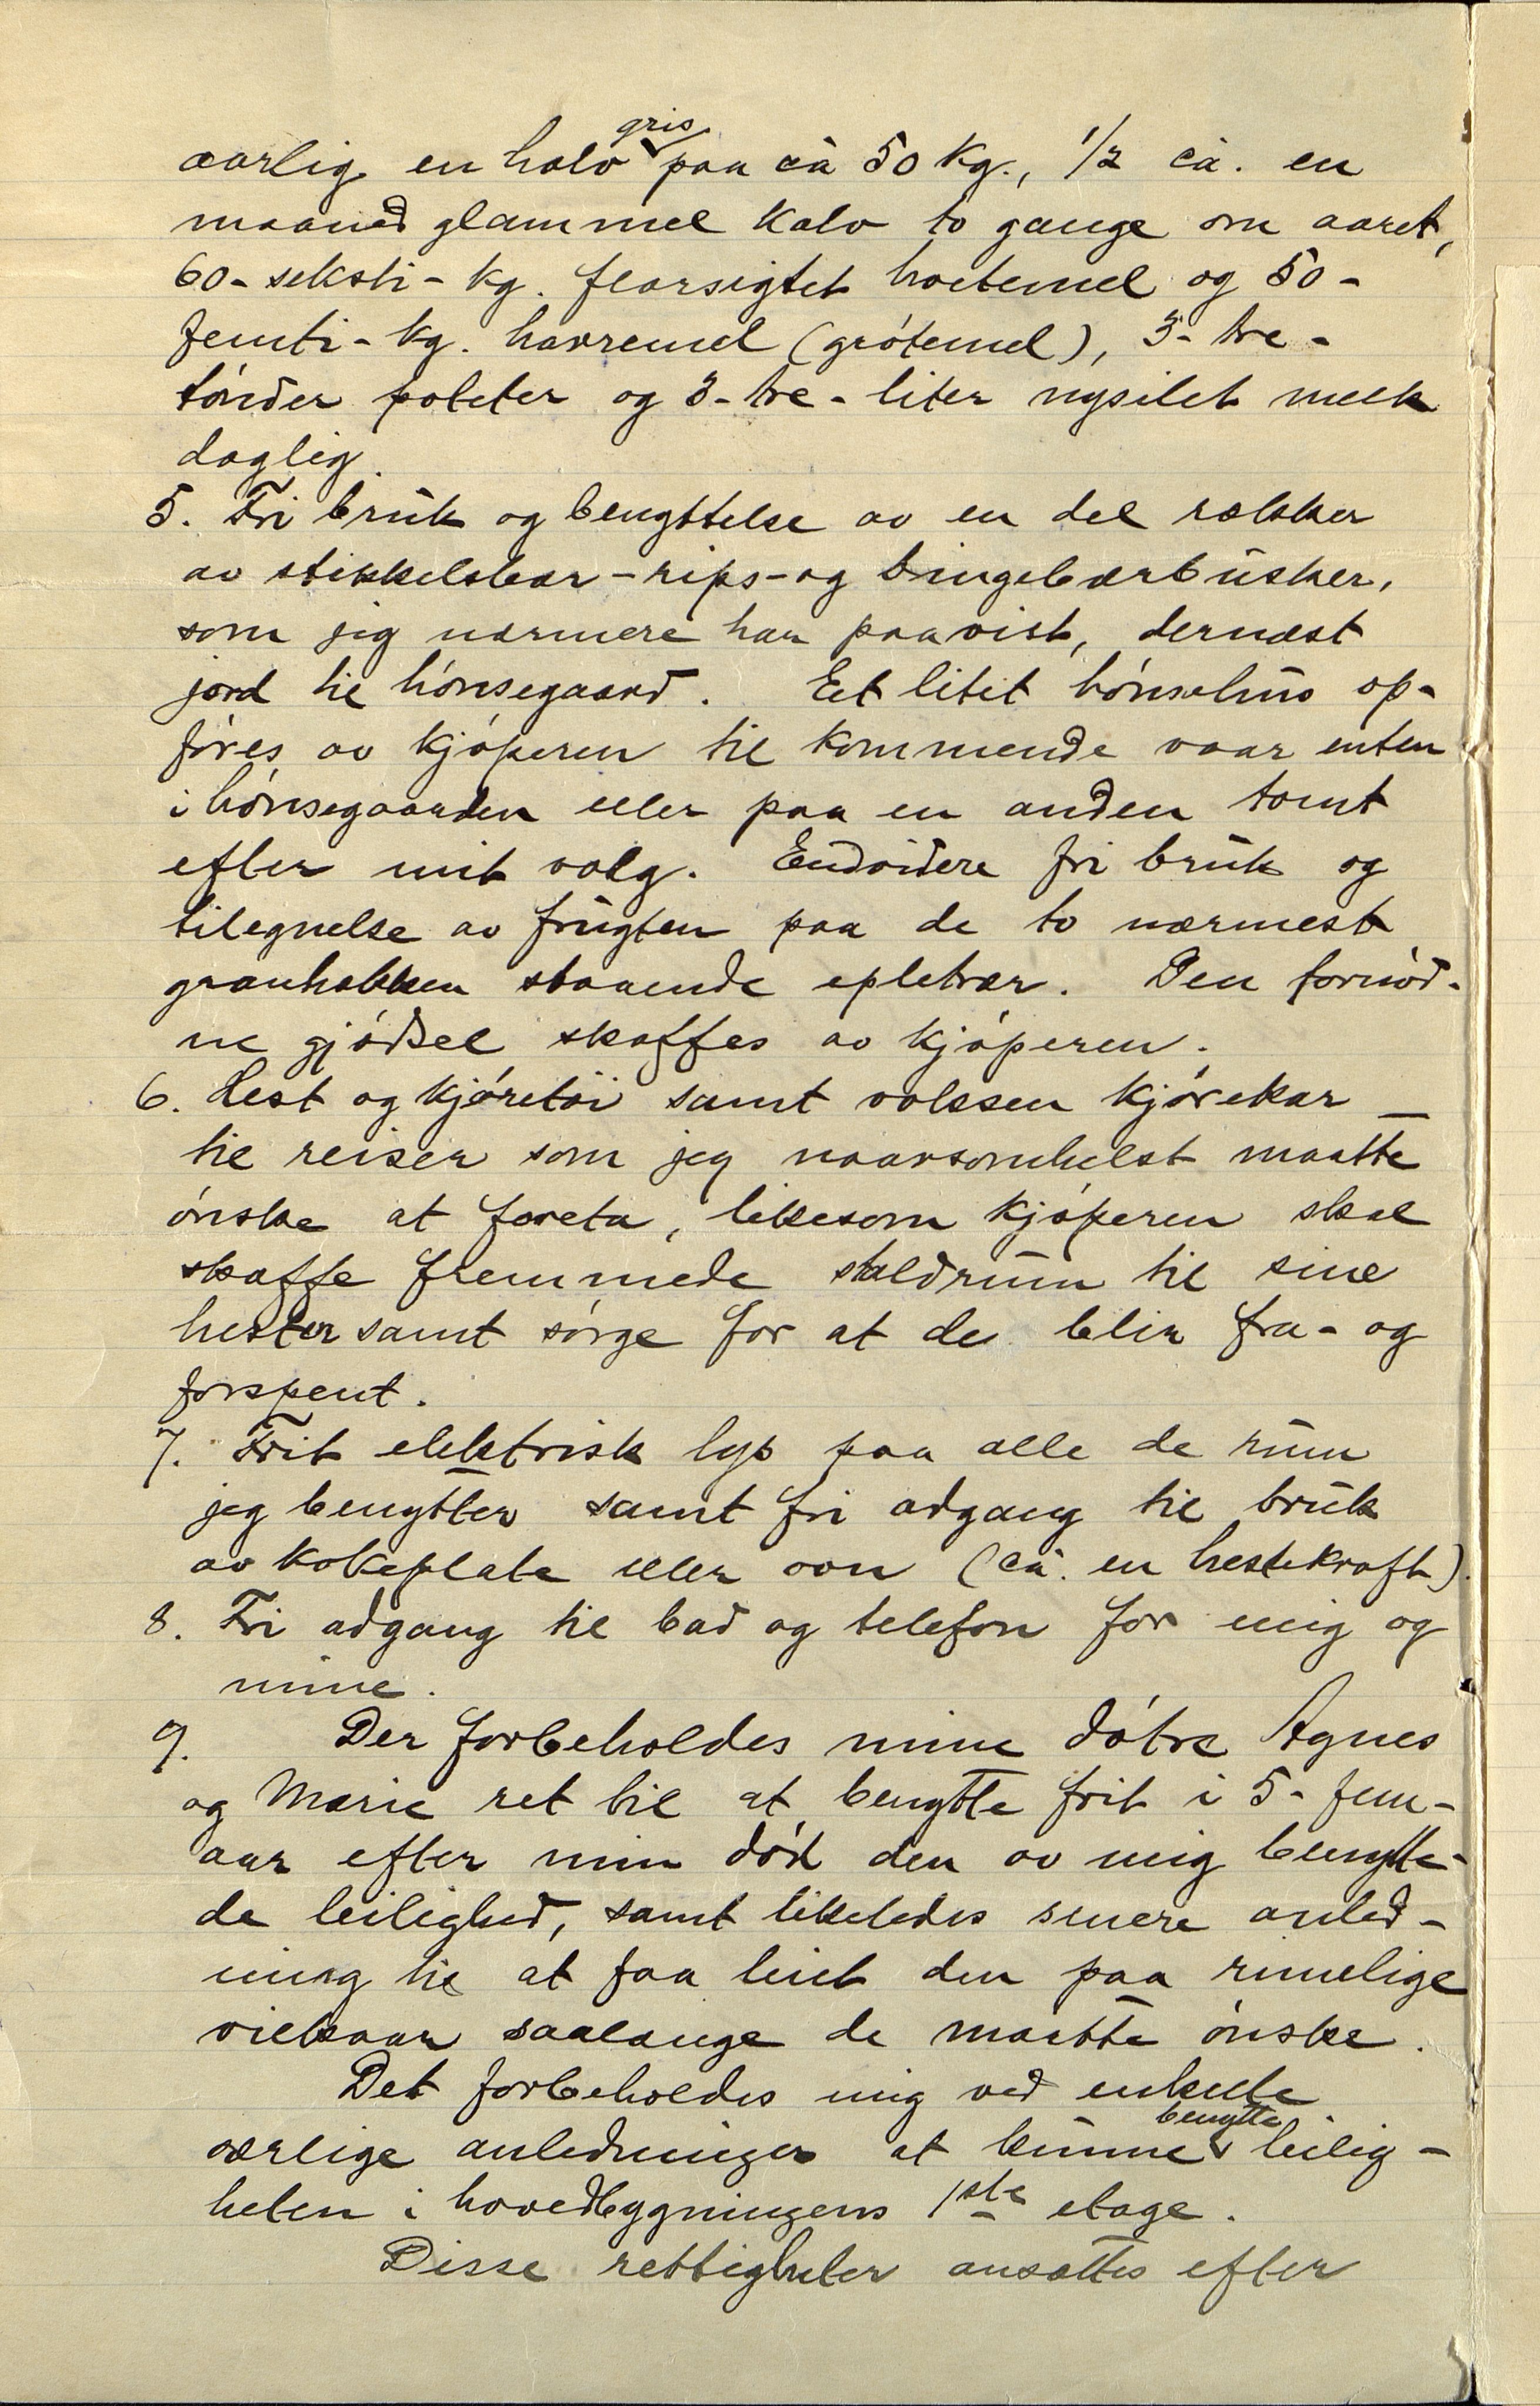 aarlig en halv gris paa ca 50 kg., 1/2 ca. en
maaned glammel kalv to gange om aaret,
60 - seksti - kg. florsigtet hvetemel og 50 -
femti - kg. havremel (grötemel), 3 - tre -
tönder poteter og 3 - tre - liter nysilet melk
daglig.
5. Fri bruk og benyttelse av en del rækker
av stikkelsbær - rips - og bringebærbusker,
som jeg nærmere har paavist, dernæst
jord til hönsegaard. Et litet hönsehus op-
føres av kjöperen til kommende vaar enten
i hönsegaarden eller paa en anden tomt
efter mit valg. Endvidere fri bruk og
tilegnelse av frugten paa de to nærmest
granhækken staaende epletrær. Den fornöd-
ne gjödsel skaffes av kjöperen.
6. Hest og kjöretöi samt voksen kjörekar
til reiser som jeg naarsomhelst maatte
önske at foreta, likesom kjöperen skal
skaffe fremmede staldrum til sine
hester samt sörge for at de blir fra- og
forspent.
7. Frit elektrisk lys paa alle de rum
jeg benytter samt fri adgang til bruk
av kokeplate eller ovn (ca. en hestekraft).
8. Fri adgang til bad og telefon for mig og
mine.
9. Der forbeholdes mine dötre Agnes
og Marie ret til at benytte frit i 5 - fem -
aar efter min död den av mig benytte-
de leilighed, samt likeledes senere anled-
ning til at faa leiet den paa rimelige
vilkaar saalænge de maatte önske.
Det forbeholdes mig ved enkelte
særlige anledninger at kunne benytte leilig-
heten i hovedbygningens 1ste etage.
Disse rettigheter ansættes efter